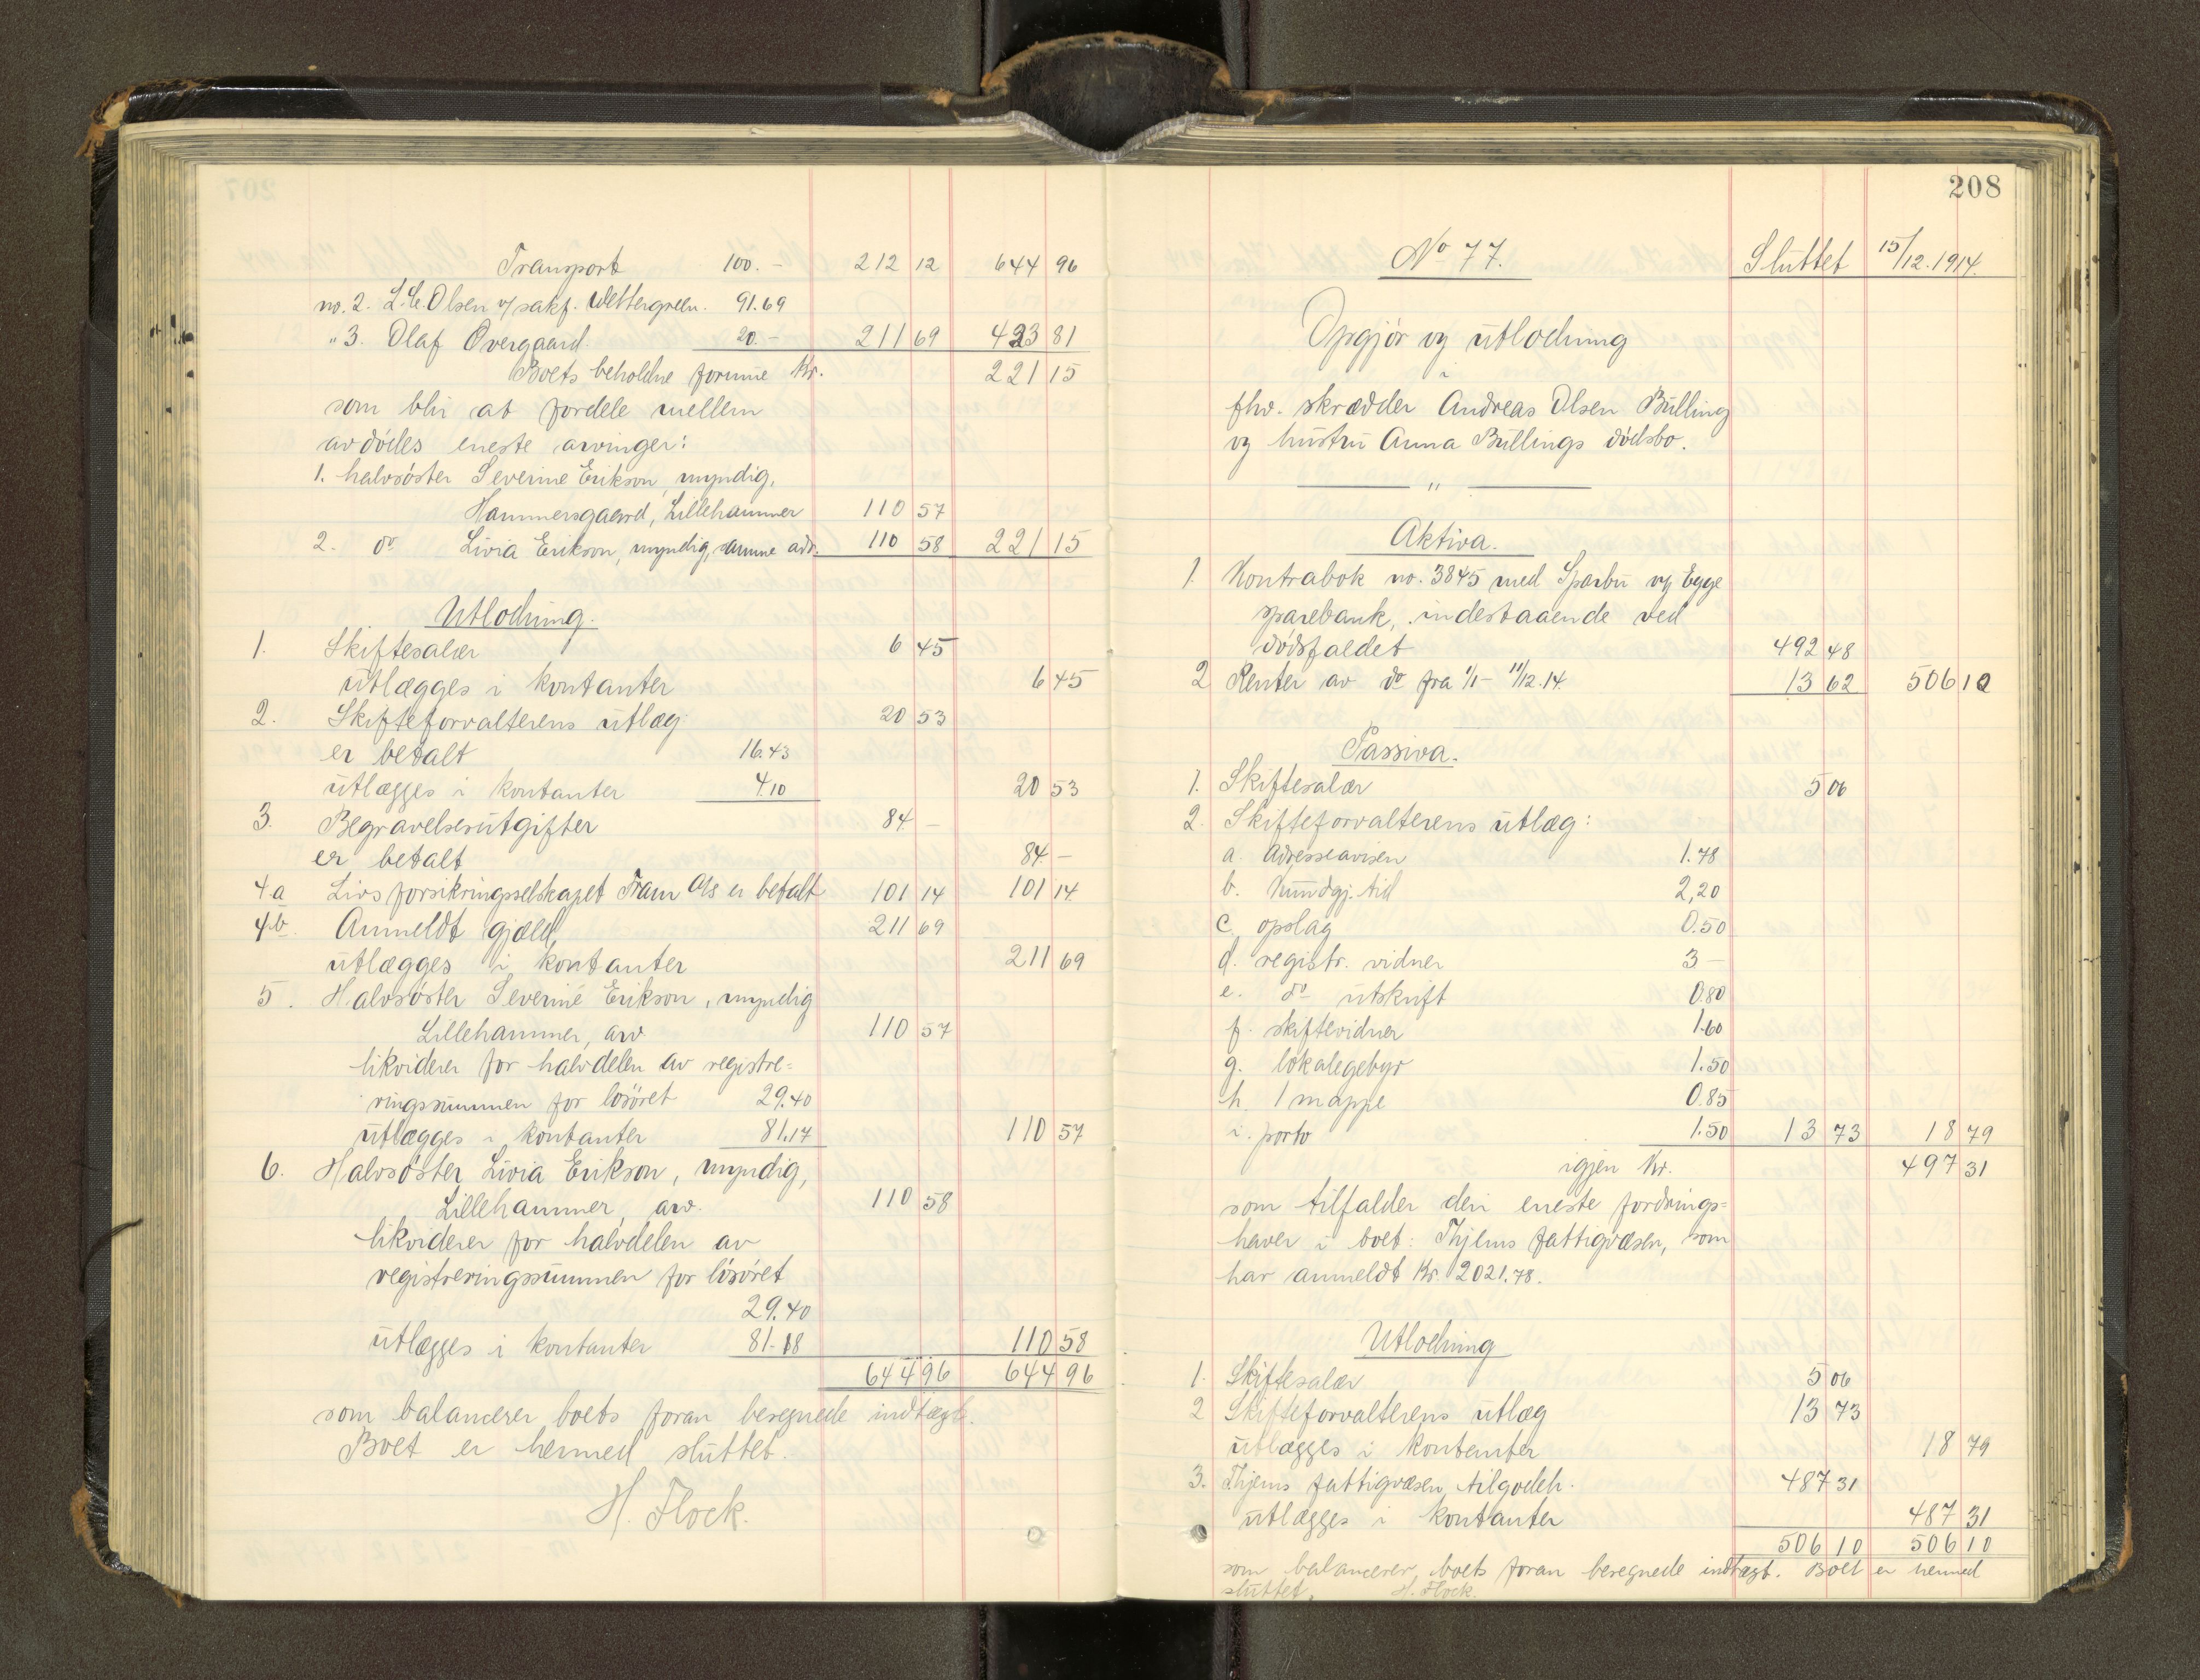 Transport 100.- 212 12 644 96
no. 2. L. C. Olsen v/ sakf. Wettergreen. 91.69
" 3. Olaf Overgaard 20.- 211 69 423 81
Boets beholdne formue Kr. 221 15
som blir at fordele mellem
avdödes eneste arvinger:
1. halvsöster Severine Erikson, myndig,
Hammersgaard, Lillehammer 110 57
2. do Livia Erikson, myndig, samme adr. 110 58 221 15
Utlodning.
1. Skiftesalær 6 45
utlægges i kontanter 6 45
2. Skifteforvalterens utlæg 20 53
er betalt 16.43
utlægges i kontanter 4.10 20 53
3. Begravelsesutgifter 84 -
er betalt 84 -
4 a Livsforsikringsselskapet Fram A/s er betalt 101 14 101 14
4 b. Anmeldt gjæld, 211 69
utlægges i kontanter 211 69
5. Halvsöster Severine Erikson, myndig
Lillehammer, arv 110 57
likviderer for halvdelen av registre=
ringssummen for lösöret 29.40
utlægges i kontanter 81.17 110 57
6. Halvsöster Livia Erikson, myndig,
Lillehammer, arv. 110 58
likviderer for halvdelen av
registreringssummen for lösöret
29.40
utlægges i kontanter 81.18 110 58
644 96 644 96
som balancerer boets foran beregnede indtægt.
Boet er hermed sluttet.
H. Flock.
208
No 77. Sluttet 15/12.1914.
Opgjör og utlodning
i
fhv. skrædder Andreas Olsen Bulling
og hustru Anna Bullings dödsbo.
"
Aktiva.
1. Kontrabok no. 3845 med Sparbu og Egge
sparebank, indestaaende ved
dödsfaldet 492 48
2 Renter av do fra 1/1 - 11/12.14. 13 62 506 10
Passiva.
1. Skiftesalær 5 06
2. Skifteforvalterens utlæg:
a. Adresseavisen 1.78
b. Kundgj. tid 2,20
c. opslag 0.50
d. registr. vidner 3 -
e. do utskrift 0.80
f. skiftevidner 1.60
g. lokalegebyr 1.50
h 1 mappe 0.85
i. porto 1.50 13 73 18 79
igjen Kr. 497 31
som tilfalder den eneste fordrings=
haver i boet: Thjems fattigvæsen, som
har anmeldt Kr. 2021.78.
Utlodning
1. Skiftesalær 5 06
2 Skifteforvalterens utlæg 13 73
utlægges i kontanter 18 79
3. Thjems fattigvæsen tilgodeh. 487 31
utlægges i kontanter 487 31
506 10 506 10
som balancerer boets foran beregnede indtægt. Boet er hermed
sluttet. H. Flock.